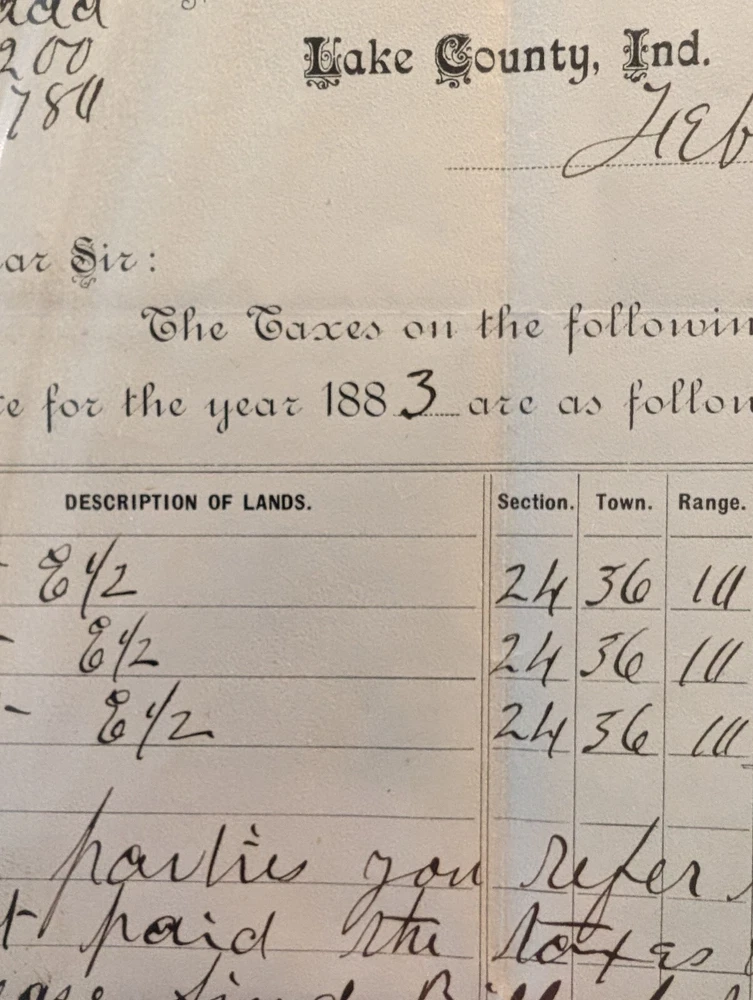 add
200
780
Lake County, Ind.
Feb
ar Sir:
The Taxes on the followin
e for the year 1883 are as follow
DESCRIPTION OF LANDS. Section. Town. Range.
- E 1/2 24 36 10
- E 1/2 24 36 10
- E 1/2 24 36 10
parties you refer
t paid the taxes
ease send Bill